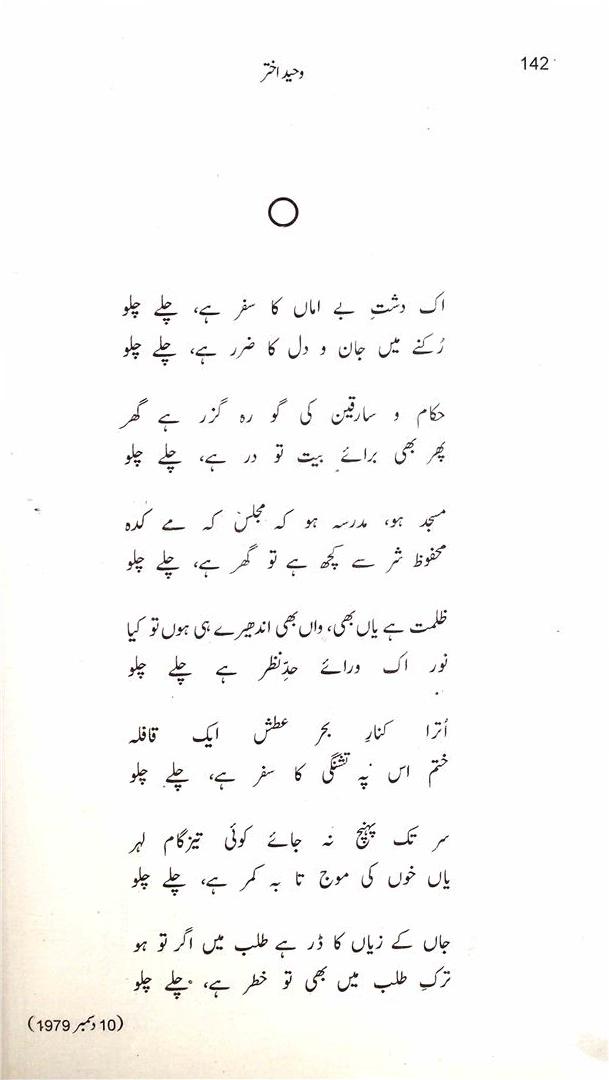 142
وحید اختر
اک دشتِ بے اماں کا سفر ہے، چلے چلو
رُکنے میں جان و دل کا ضرر ہے، چلے چلو
حکام و سارقین کی گو رہ گزر ہے گھر
پھر بھی برائے بیت تو در ہے، چلے چلو
مسجد ہو، مدرسہ ہو کہ مجلس کہ مے کدہ
محفوظ شر سے کچھ ہے تو گھر ہے، چلے چلو
ظلمت ہے یاں بھی، واں بھی اندھیرے ہی ہوں تو کیا
نور اک ورائے حدِّ نظر ہے چلے چلو
اُترا کنارِ بحرِ عطش ایک قافلہ
ختم اس پہ تشنگی کا سفر ہے، چلے چلو
سر تک پہنچ نہ جائے کوئی تیزگام لہر
یاں خوں کی موج تا بہ کمر ہے، چلے چلو
جاں کے زیاں کا ڈر ہے طلب میں اگر تو ہو
ترکِ طلب میں بھی تو خطر ہے، چلے چلو
(10 دسمبر 1979)